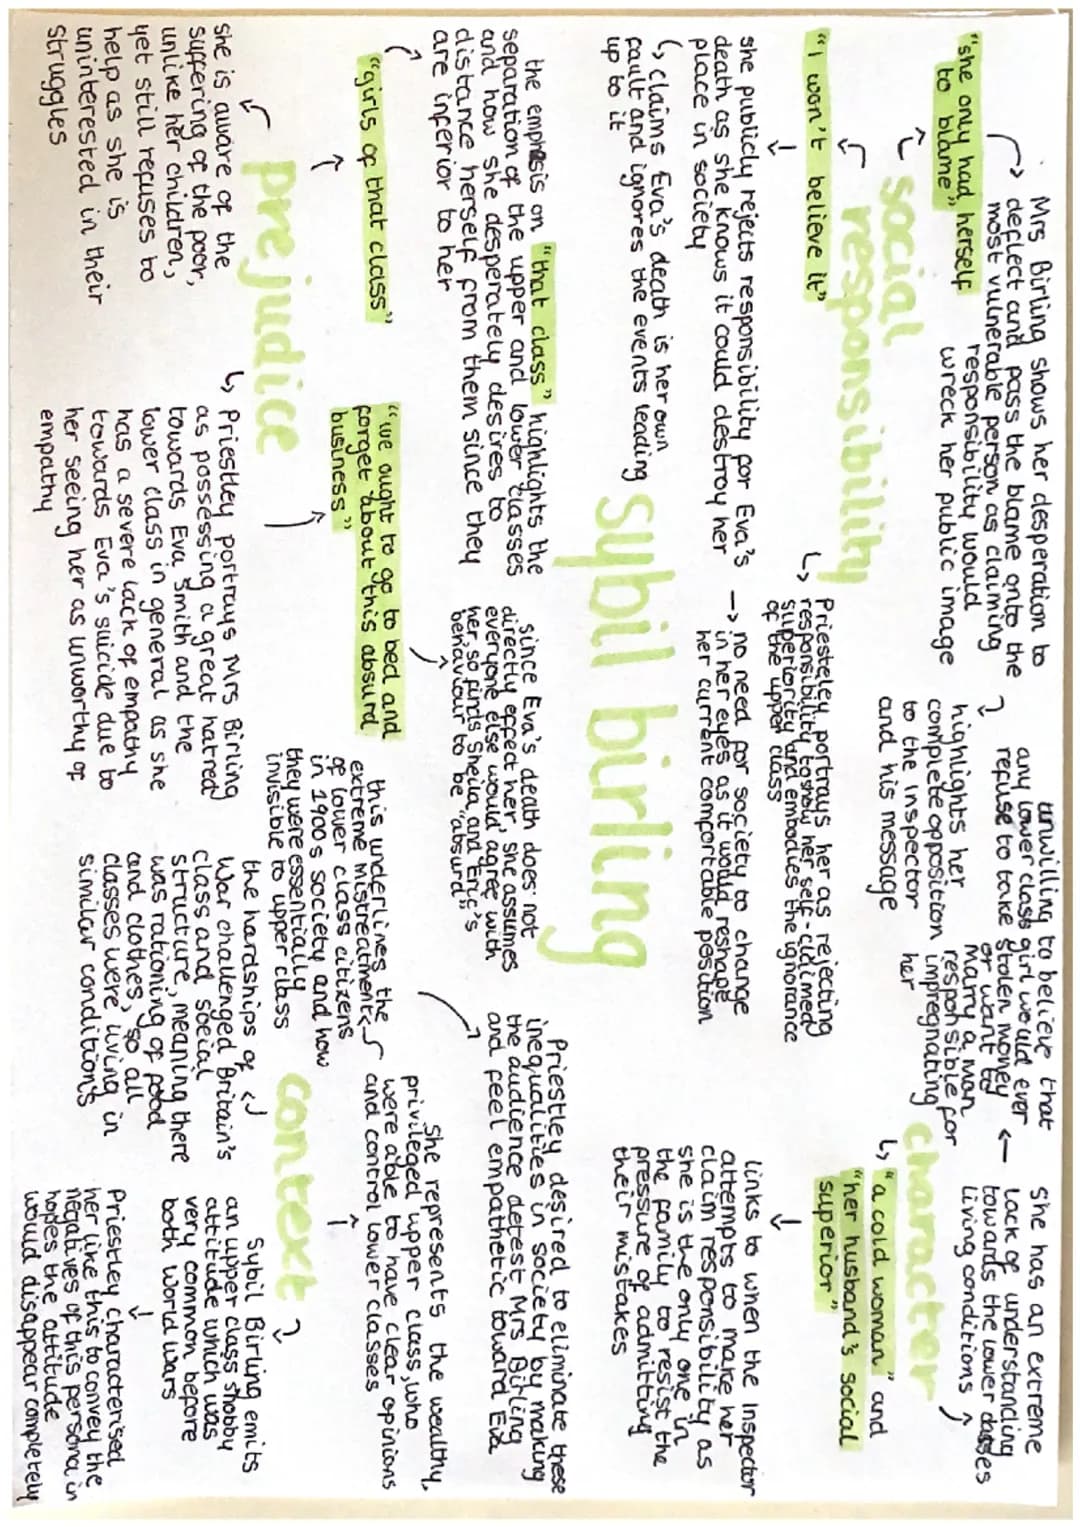 sybil birling
social
responsibility
Mrs Birling shows her desperation to
deflect and pass the blame onto the
most vulnerable person as claiming
responsibility would
wreck her public image
"she only had herself
to blame"
"I won't believe it"
she publicly rejects responsibility for Eva's
death as she knows it could destroy her
place in society
↳ claims Eva's death is her own
fault and ignores the events leading
up to it
↳ Priesteley portrays her as rejecting
responsibility to show her self-claimed
superiority and embodies the ignorance
of the upper class
→ no need for society to change
in her eyes as it would reshape
her current comfortable position
character
she has an extreme
lack of understanding
towards the lower classes
living conditions
unwilling to believe that
any lower class girl would ever
refuse to take stolen money
or want to
marry a man
responsible for
impregnating
her
highlights her
complete opposition
to the inspector
and his message
↳ "a cold woman" and
"her husband's social
superior"
links to when the Inspector
attempts to make her
claim responsibility as
she is the only one in
the family to resist the
pressure of admitting
their mistakes
prejudice
the emphasis on "that class" highlights the
separation of the upper and lower classes
and how she desperately desires to
distance herself from them since they
are inferior to her
"girls of that class"
she is aware of the
suffering of the poor,
unlike her children,
yet still refuses to
help as she is
uninterested in their
struggles
since Eva's death does not
directly effect her, she assumes
everyone else would agree with
her, so finds Sheila and Eric's
behaviour to be "absurd"
"we ought to go to bed and
forget about this absurd
business"
↳ Priestley portrays Mrs Birling
as possessing a great hatred
towards Eva Smith and the
lower class in general as she
has a severe lack of empathy
towards Eva's suicide due to
her seeing her as unworthy of
empathy
context
Priestley desired to eliminate these
inequalities in society by making
the audience detest Mrs Birling
and feel empathetic toward Eva
this underlines the
extreme mistreatment
of lower class citizens
in 1900s society and how
they were essentially
invisible to upper class
She represents the wealthy,
privileged upper class, who
were able to have clear opinions
and control lower classes
the hardships of
War challenged Britain's
class and social
structure, meaning there
was rationing of food
and clothes, so all
classes were living in
similar conditions
Sybil Birling emits
an upper class snobby
attitude which was
very common before
both world wars
Priestley characterised
her like this to convey the
negatives of this persona in
hopes the attitude
would disappear completely